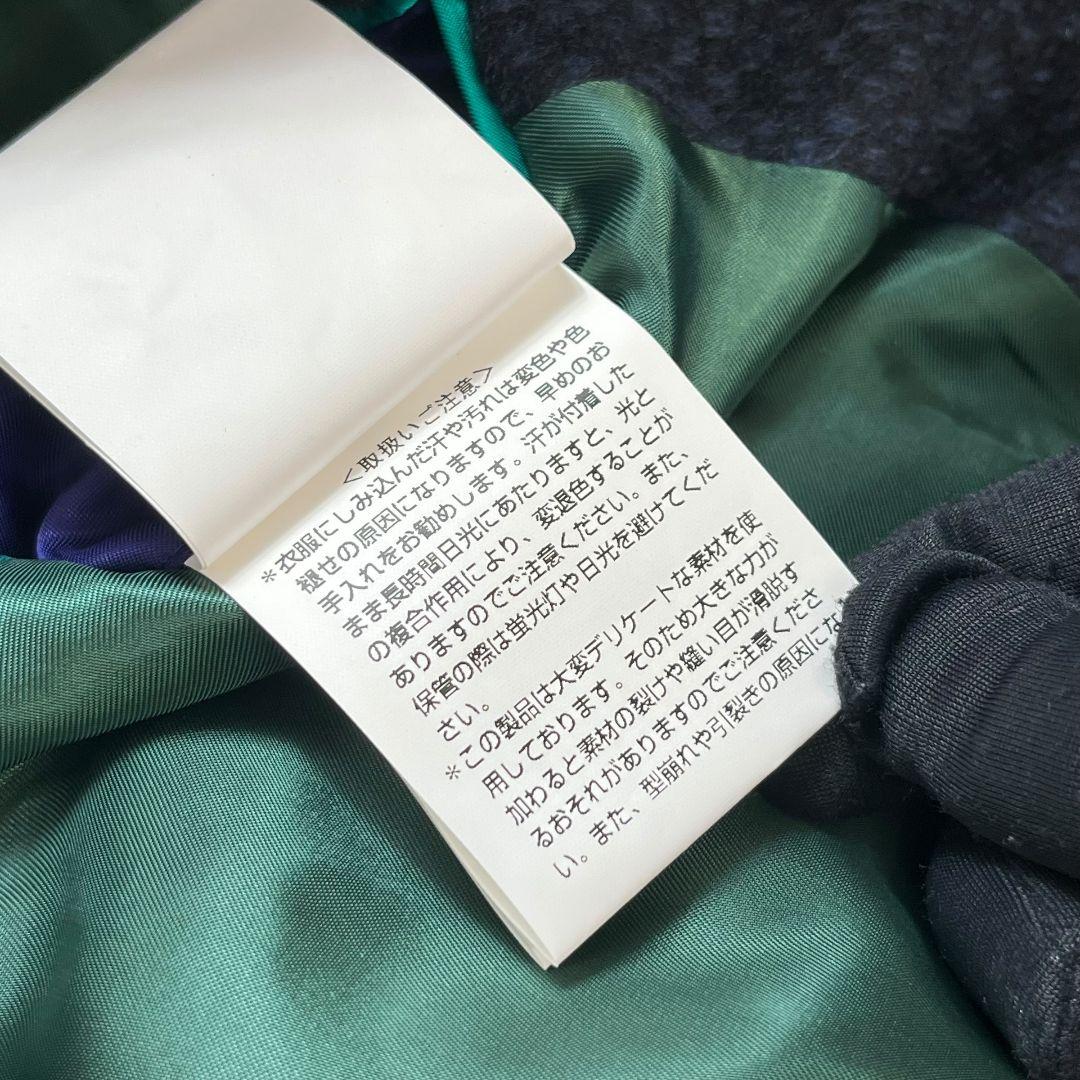 <取扱いご注意>
*衣服にしみ込んだ汗や汚れは変色や色
褪せの原因になりますので、早めのお
手入れをお勧めします。汗が付着した
まま長時間日光にあたりますと、光と
の複合作用により、変退色することが
ありますのでご注意ください。また、
保管の際は蛍光灯や日光を避けてくだ
さい。
*この製品は大変デリケートな素材を使
用しております。そのため大きな力が
加わると素材の裂けや縫い目が滑脱す
るおそれがありますのでご注意くださ
い。また、型崩れや引裂きの原因にな